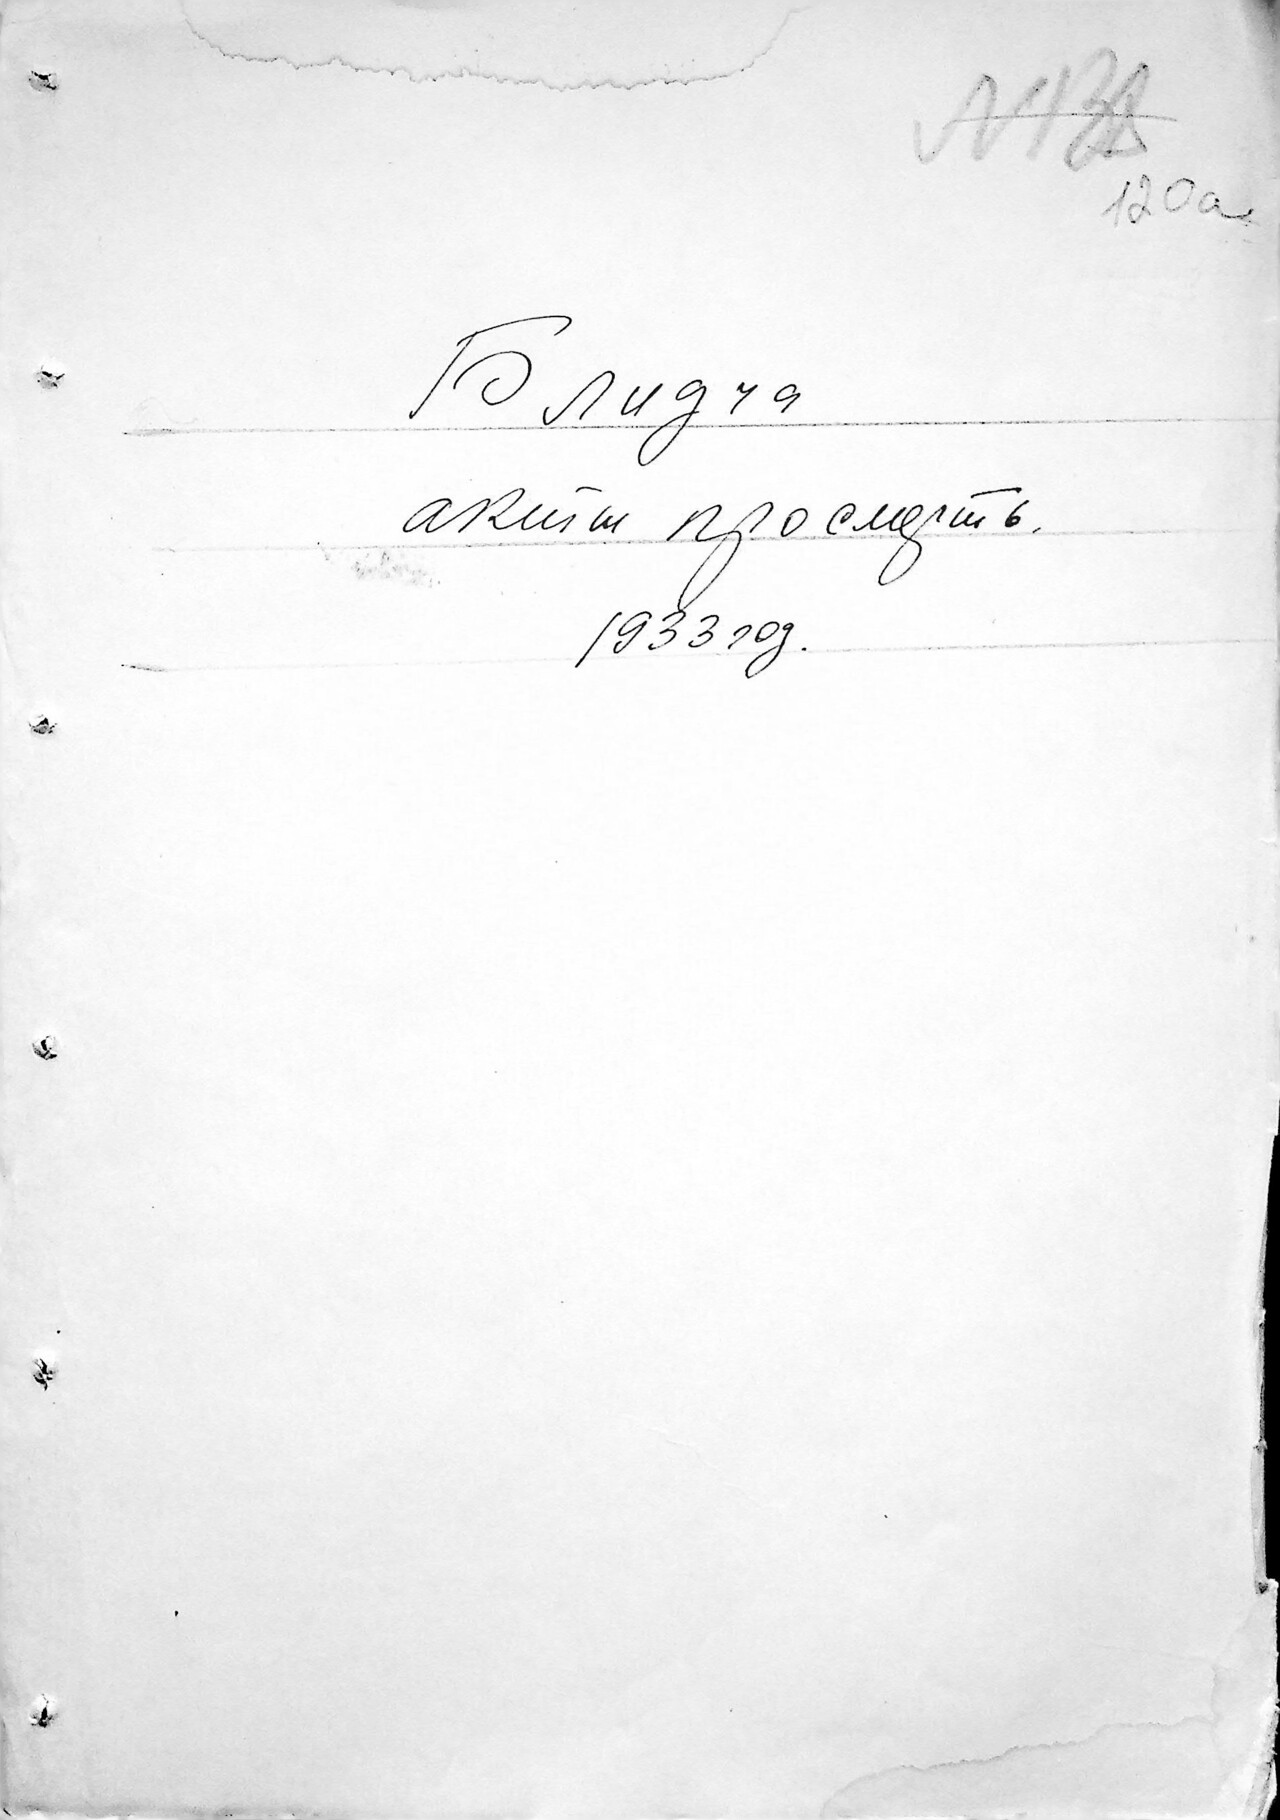 120а
Блидча
акти про смерть.
1933 год.